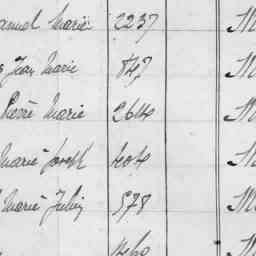 Marie 2237 M
Jean Marie 847 M
Pierre Marie 2614 M
Marie Joseph 404 M
Marie Julien 578 M